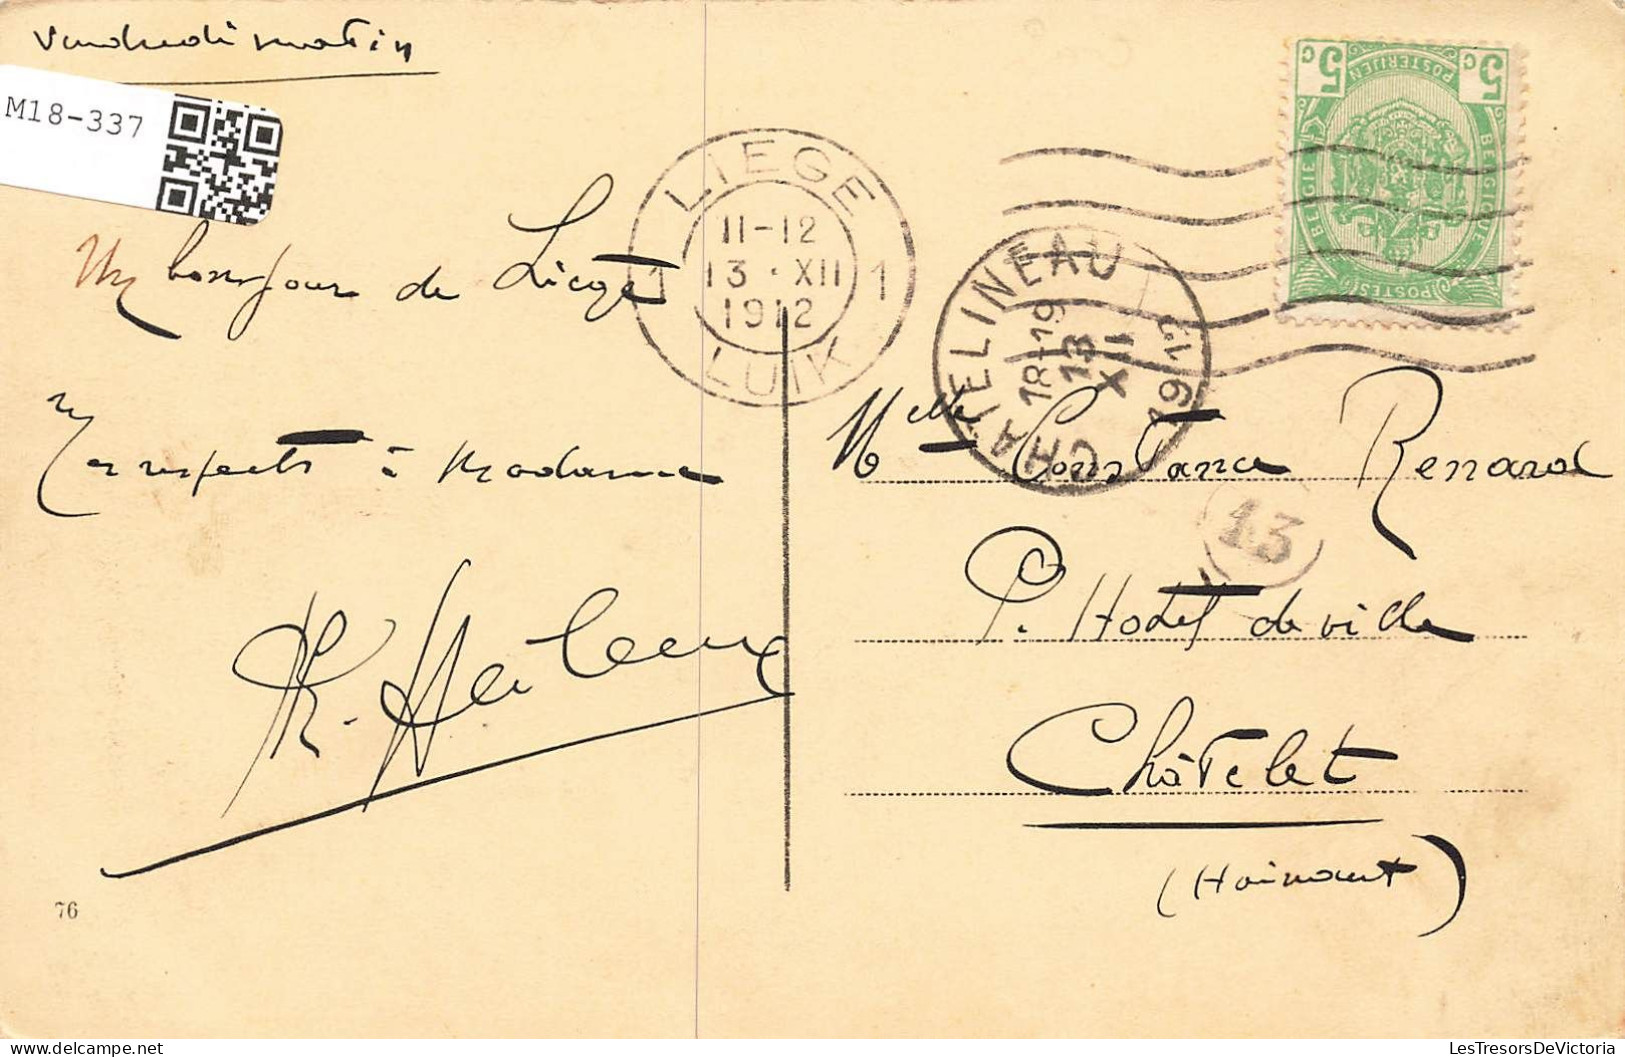 Vendredi matin
M18-337
Un bonjour de Liège
Mes respects à Madame
76
LIEGE
11-12
1 13 · XII 1
1912
LUIK
CHATELINEAU
18-19
13
XII
1912
5c 5c
POSTERIJEN
BELGIE BELGIQUE
POSTES
Melle Constance Renard
13
P. Hotel de ville
Châtelet
(Hainaut)
LesTresorsDeVictoria